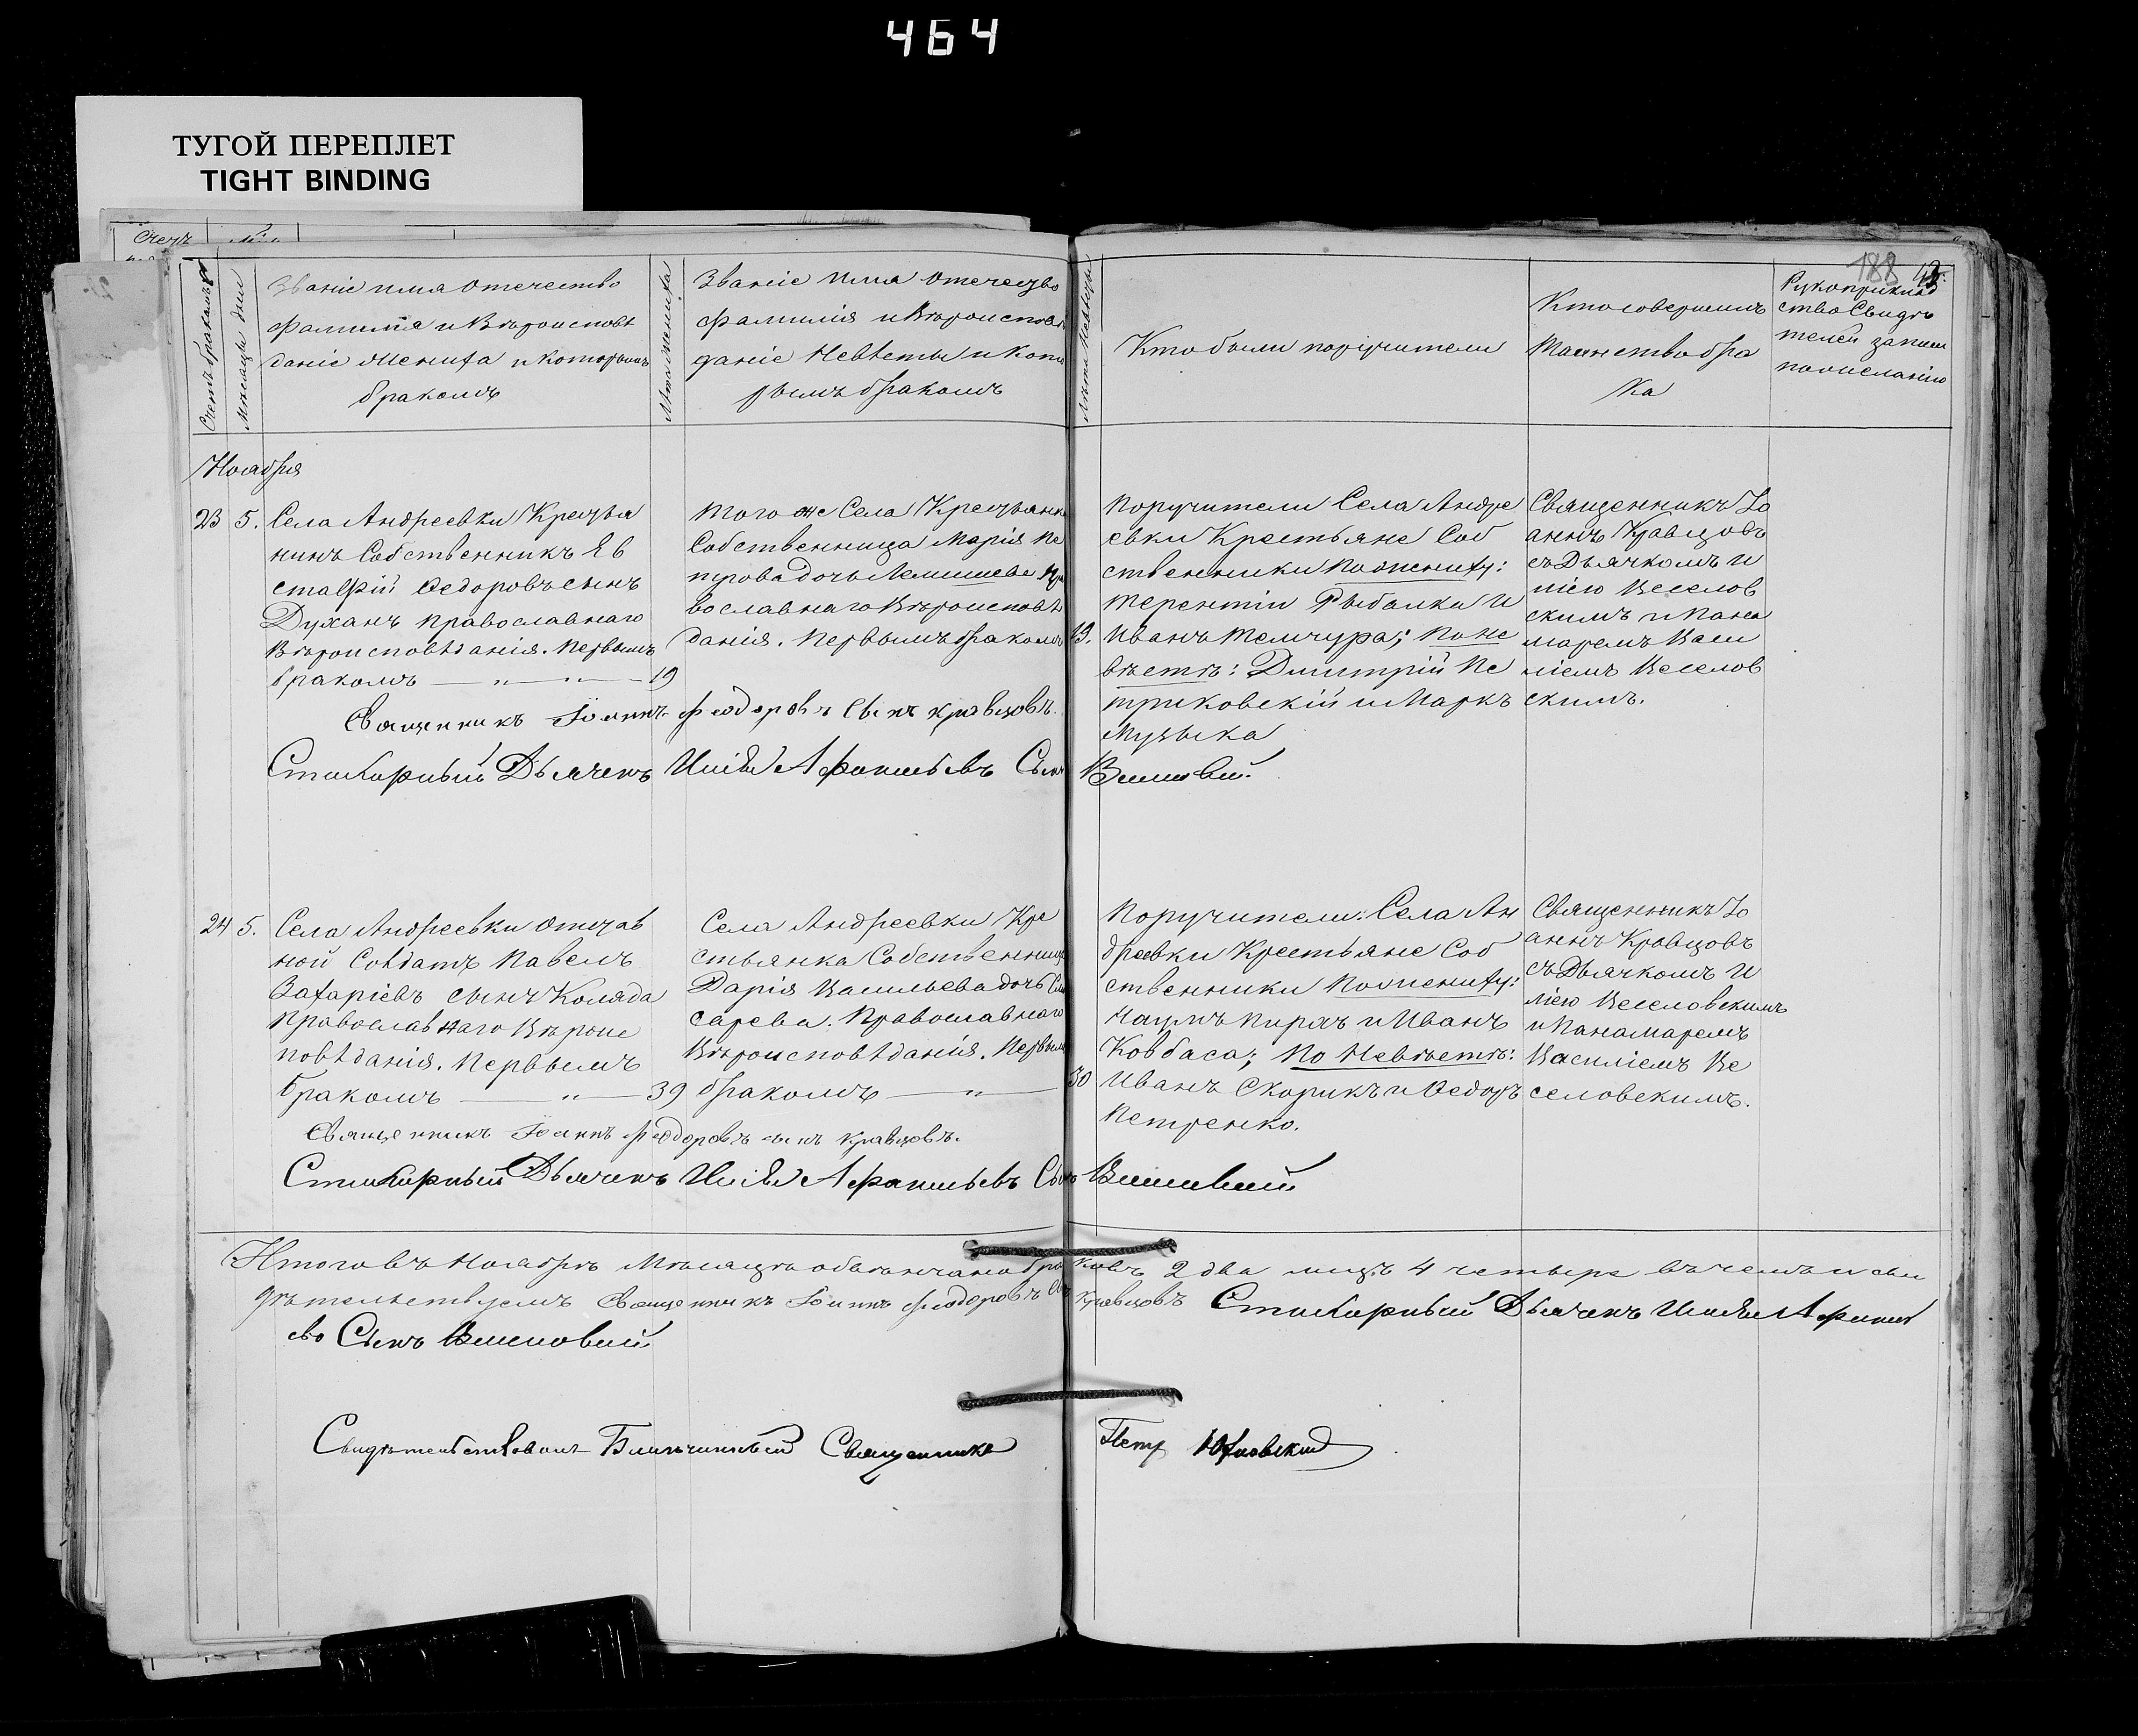 464
ТУГОЙ ПЕРЕПЛЕТ
TIGHT BINDING
Счетъ
188
Счетъ браковъ
Мѣсяцъ дни
Званіе имя отечество
фамилія и Вѣроисповѣ
даніе жениха и которымъ
бракомъ
Лѣта жениха
Званіе имя отечество
фамилія и Вѣроисповѣ
даніе Невѣсты и кото
рымъ бракомъ
Лѣта Невѣсты
Кто были поручители
Кто совершилъ
Таинство бра
ка
Рукоприклад
ство Свидѣ
телей записи
по желанію
Ноября
23 5.
Села Андреевки Крестья
нинъ Собственникъ Ев
стафій Ѳедоровъ сынъ
Духанъ православнаго
Вѣроисповѣданія. Первымъ
бракомъ — „ — „ — 19
того же Села Крестьянка
Собственница Марія Пе
трова дочь Пра
вославнаго Вѣроисповѣ
данія. Первымъ бракомъ 19.
Поручители Села Андре
евки Крестьяне Соб
ственники По жениху:
Терентій Рыбалка и
Иванъ Темчура; По не
вѣстѣ: Дмитрій Пе
триковскій и Маркъ
Музыка
Священникъ Іо
аннъ Кравцовъ
съ Дьячкомъ И
ліею Веселов
скимъ и Пана
маремъ Васи
ліемъ Веселов
скимъ.
Священникъ Іоаннъ Феодоровъ Сынъ Кравцовъ.
Стихарный Дьячекъ Илія Афанасьевъ Сынъ
24 5.
Села Андреевки Отстав
ной Солдатъ Павелъ
Захаріевъ сынъ Коляда
Православнаго Вѣроис
повѣданія. Первымъ
бракомъ — „ — 39
Села Андреевки Кре
стьянка Собственница
Дарія Васильева дочь
Православнаго
Вѣроисповѣданія. Первымъ
бракомъ — „ — 30
Поручители: Села Ан
дреевки Крестьяне Соб
ственники По жениху:
Наумъ Пирхъ и Иванъ
Ковбаса; По Невѣстѣ:
Иванъ Скорикъ и Ѳедоръ
Петренко.
Священникъ Іо
аннъ Кравцовъ
съ Дьячкомъ И
ліею Веселовскимъ
и Панамаремъ
Василіемъ Ве
селовскимъ.
Священникъ Іоаннъ Феодоровъ сынъ Кравцовъ.
Стихарный Дьячекъ Илія Афанасьевъ Сынъ
Итого въ Ноябрѣ Мѣсяцѣ обвѣнчано браковъ 2 два лицъ 4 четыре въ чемъ и сви
дѣтельствуемъ Священникъ Іоаннъ Феодоровъ Сынъ Кравцовъ Стихарный Дьячекъ Илія Афанась
евъ Сынъ
Свидѣтельствовалъ Благочинный Священникъ Петръ